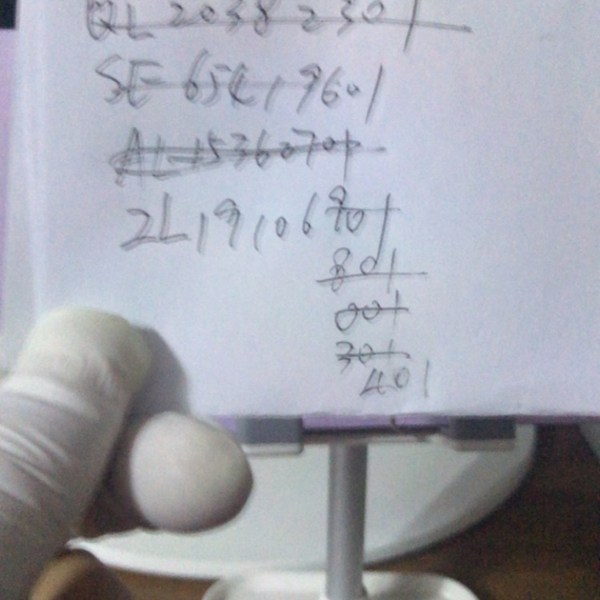 QL 2038 2301
SE 65419601
AL 15360701
ZL19106901
801
001
301
401